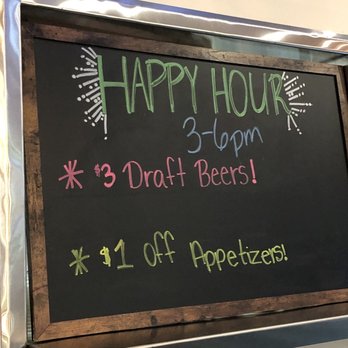 HAPPY HOUR
3-6pm
* $3 Draft Beers!
* $1 off Appetizers!